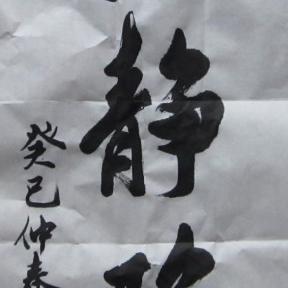 静
癸巳仲春